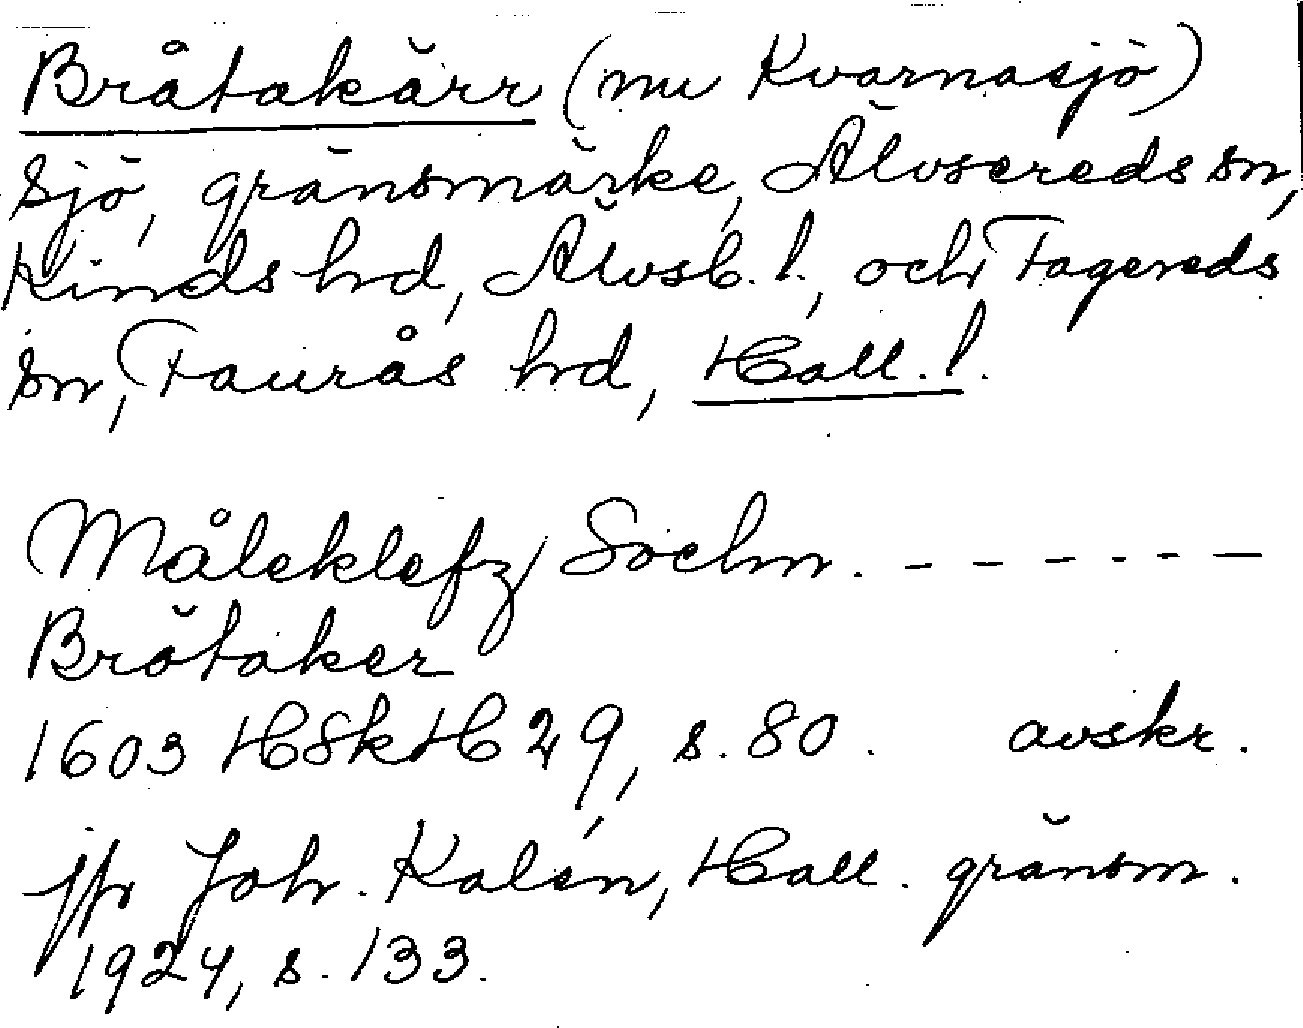 Bråtakärr (nu Kvarnasjö)
sjö, gränsmärke, Älvsereds sn,
Kinds hd, Älvsb. l., och Fagereds
sn, Faurås hd, Hall. l.
Måleklefz Sochn. - - - - - -
Brötaker
1603 HSkH 29, s. 80. avskr.
jfr Joh. Kalén, Hall. gränsm.
1924, s. 133.